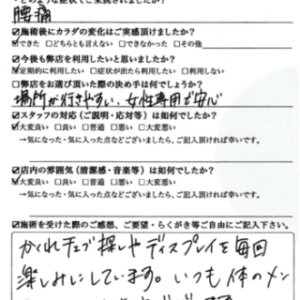 腰痛
☑施術後にカラダの変化はご実感頂けましたか?
☑できた □どちらとも言えない □できなかった □その他
☑今後も弊店を利用したいと思いましたか?
☑定期的に利用したい □症状が出たら利用したい □利用しない
□弊店をお選び頂いた際の決め手は何でしょうか?
場所が行きやすい、女性専用で安心
☑スタッフの対応(ご説明・応対等)は如何でしたか?
☑大変良い □良い □普通 □悪い □大変悪い
→気になった・気に入った点などございましたら、ご記入頂ければ幸いです。
☑店内の雰囲気(清潔感・音楽等)は如何でしたか?
☑大変良い □良い □普通 □悪い □大変悪い
→気になった・気に入った点などございましたら、ご記入頂ければ幸いです。
☑施術を受けた際のご感想、ご要望・らくがき等ご自由にご記入下さい。
かくれチェブ探しやディスプレイを毎回
楽しみにしています。いつも体のメン